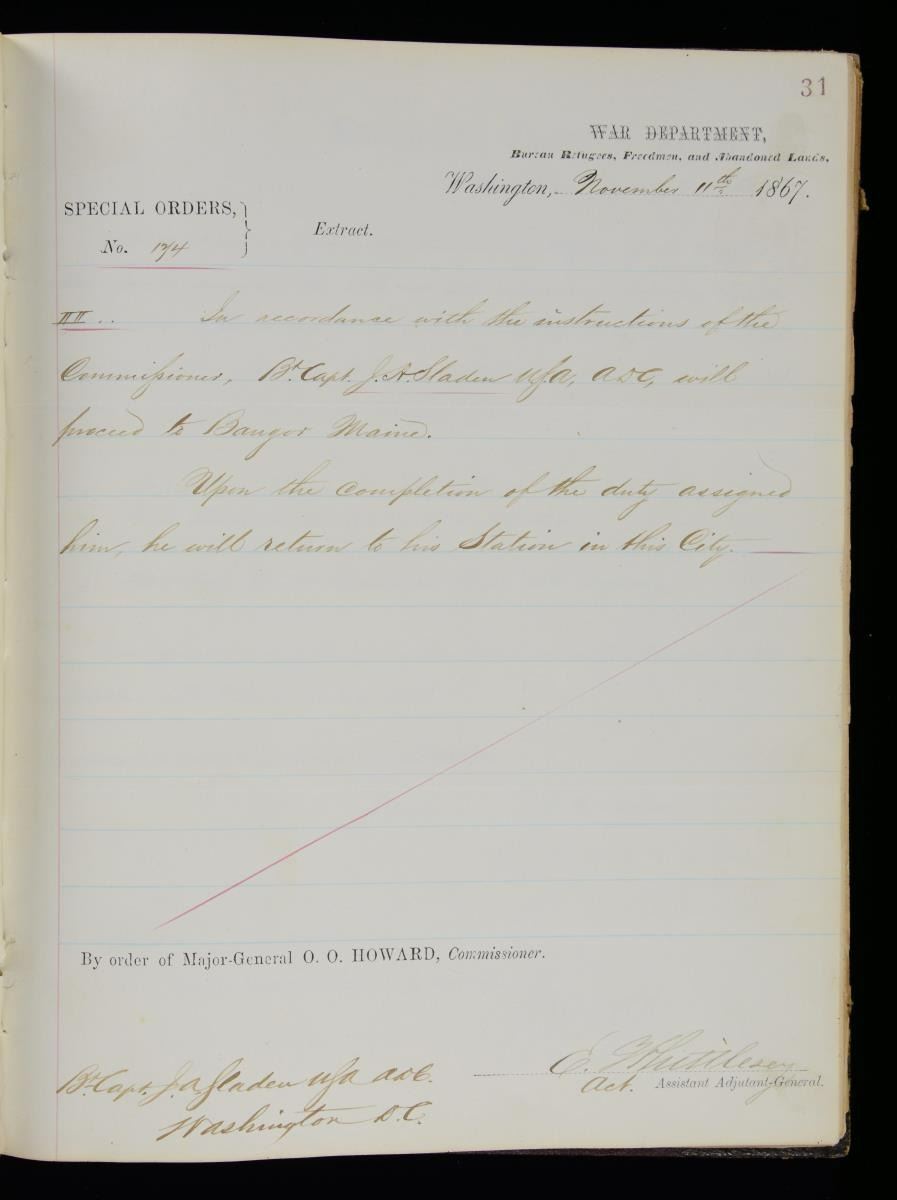 31
WAR DEPARTMENT,
Bureau Refugees, Freedmen, and Abandoned Lands,
Washington, November 11th 1867.
SPECIAL ORDERS,
No. 174
Extract.
II.. In accordance with the instructions of the
Commissioner, Bt. Capt. J. A. Sladen USA, ADC, will
proceed to Bangor Maine.
Upon the completion of the duty assigned
him, he will return to his Station in this City.
By order of Major-General O. O. HOWARD, Commissioner.
E. Whittlesey
Act. Assistant Adjutant-General.
Bt. Capt. J. A Sladen USA ADC.
Washington D.C.